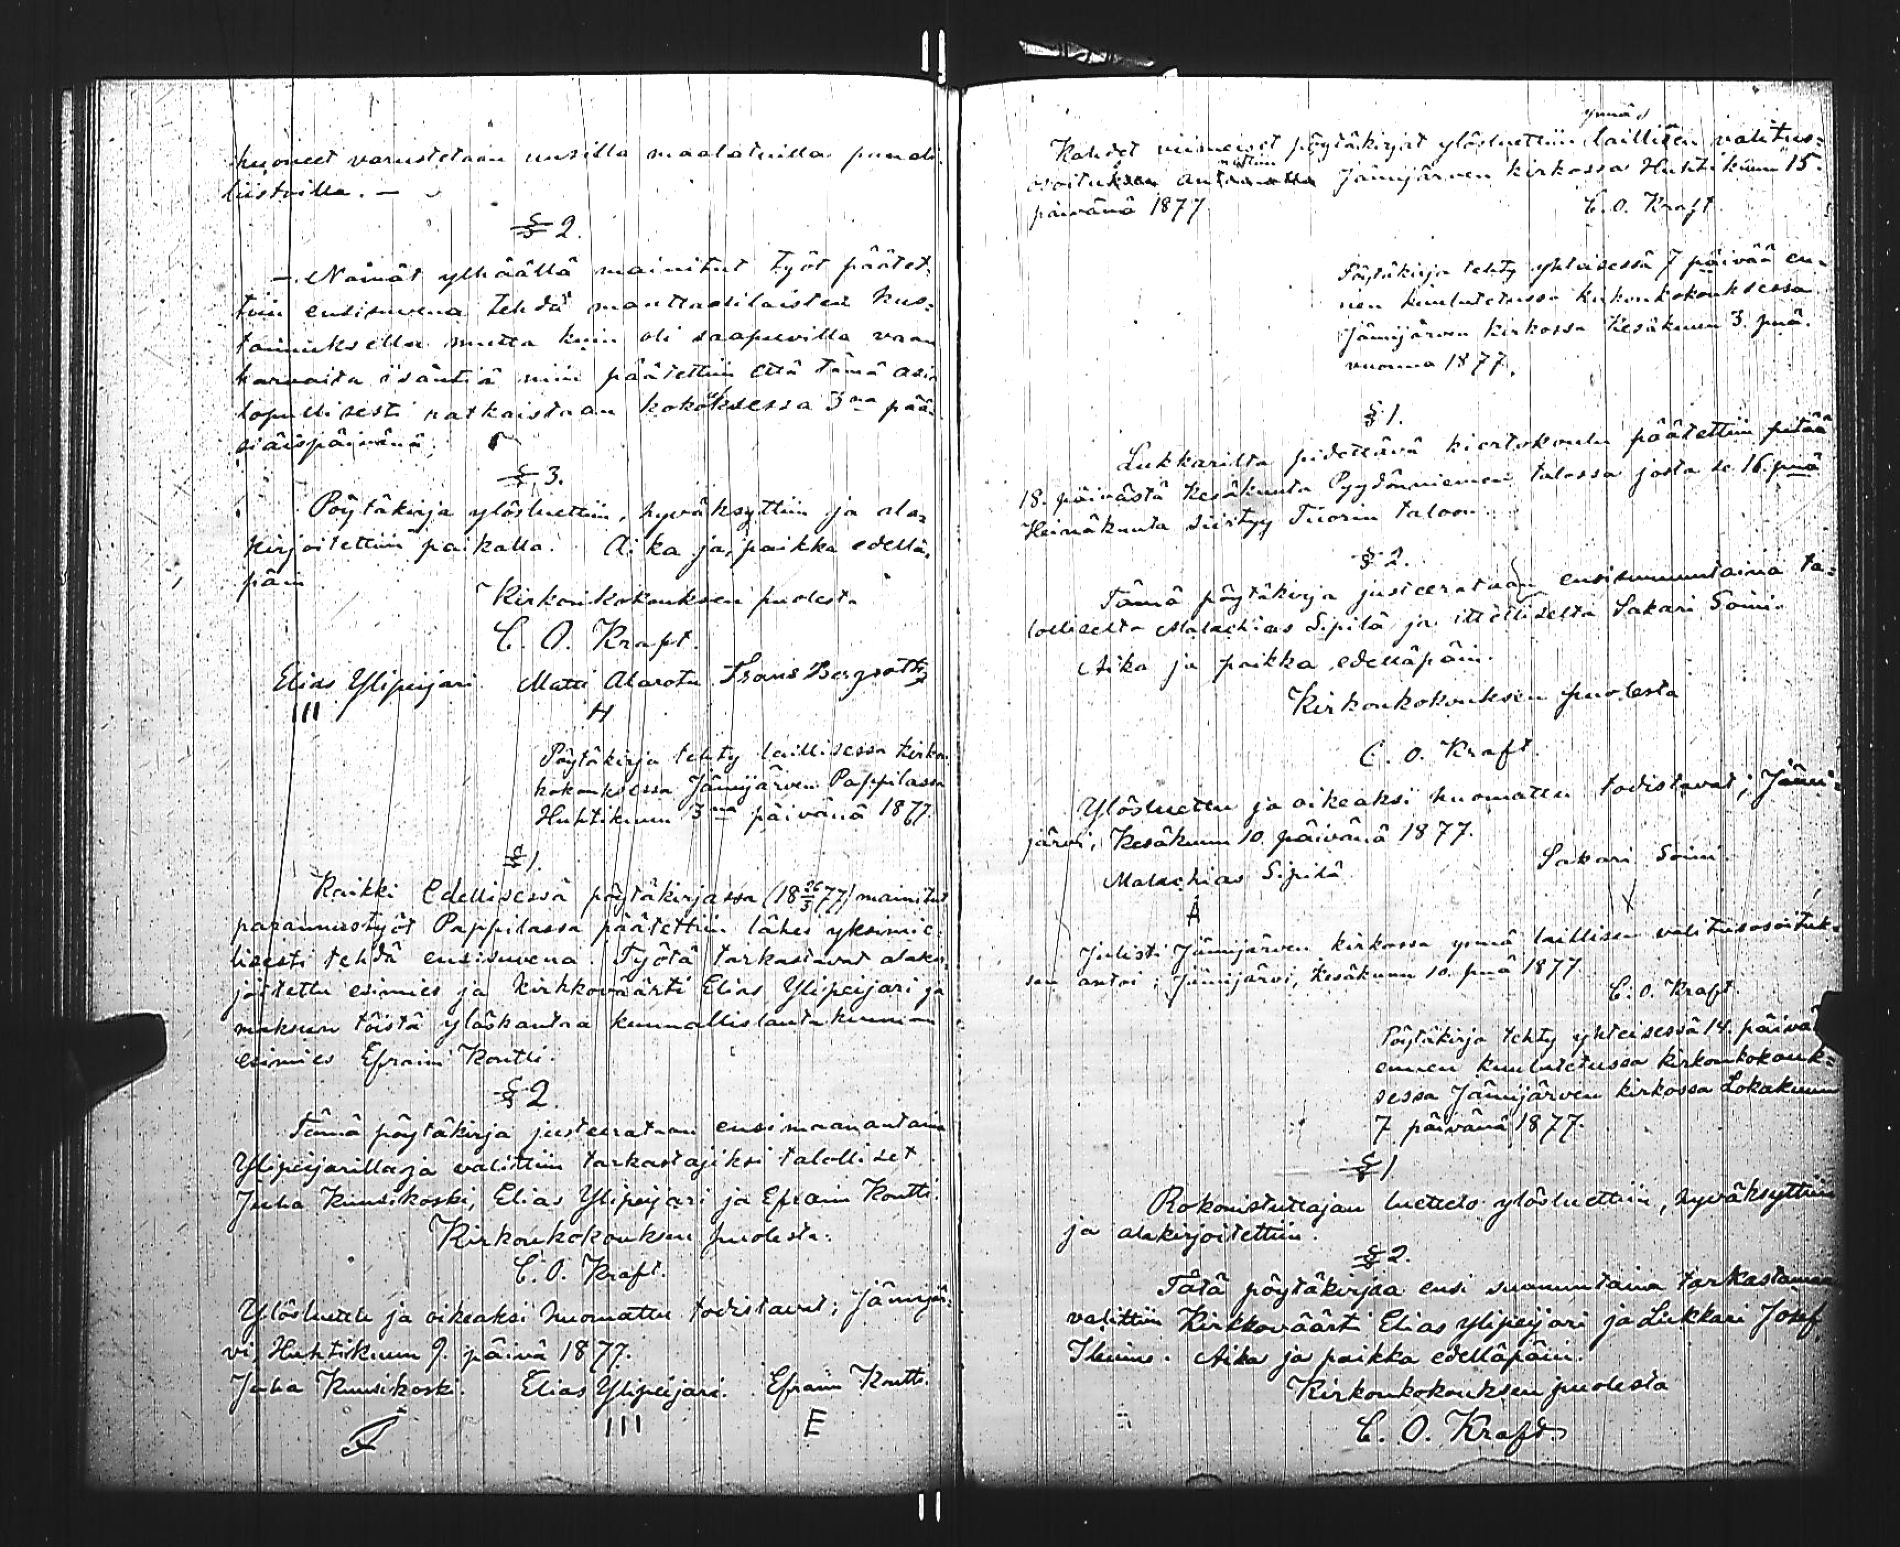 huoneet varustetaan uusilla maalatuilla puudi
liistoilla. —
§ 2.
— Nämät ylhäällä mainitut työt päätet-
tiin ensisuvena tehdä manttaalilaisten kus-
tannuksella mutta kuin oli saapuvilla vaan
harvoita isäntiä niin päätettiin että tämä asia
lopullisesti ratkaistaan kokouksessa 3na pää-
siäispäivänä.
§ 3.
Pöytäkirja ylösluettiin, hyväksyttiin ja ala-
kirjoitettiin paikalla. Aika ja paikka edellä-
päin
Kirkonkokouksen puolesta
C. O. Kraft.
Elias Ylipeijari Matti Alarotu Frans Bergroth
III H
Pöytäkirja tehty laillisessa kirkon
kokouksessa Jämijärven Pappilassa
Huhtikuun 3na päivänä 1877.
§ 1.
Kaikki Edellisessä pöytäkirjassa (18 26/3 77) mainitut
parannustyöt Pappilassa päätettiin lähes yksimie-
lisesti tehdä ensisuvena. Työtä tarkastavat alakir-
joitettu esimies ja Kirkkoväärti Elias Ylipeijari ja
maksun töistä ylöskantaa kunnallislautakunnan
esimies Efraim Koutti.
§ 2
Tämä pöytäkirja justeerataan ensimaanantaina
Ylipeijarilla ja valittiin tarkastajiksi talolliset
Juha Kuusikoski, Elias Ylipeijari ja Efraim Koutti.
Kirkonkokouksen puolesta.
C. O. Kraft.
Ylösluettu ja oikeaksi huomattu todistavat; Jämijär-
vi, Huhtikuun 9. päivä 1877.
Juha Kuusikoski. Elias Ylipeijari. Efraim Koutti.
III E
ynnä
Kahdet viimeiset pöytäkirjat ylösluettiin laillisen valitus-
osoituksen antamalla Jämijärven kirkossa Huhtikuun 15.
päivänä 1877.
C. O. Kraft.
Pöytäkirja tehty yhteisessä 7 päivää en-
nen kuulutetussa kirkonkokouksessa
Jämijärven kirkossa Kesäkuun 3. pnä.
vuonna 1877.
§ 1.
Lukkarilta pidettävä kiertokoulu päätettiin pitää
18. päivästä Kesäkuuta Pyydönniemen talossa josta se 16. pnä
Heinäkuuta siirtyy Tiorin taloon.
§ 2.
Tämä pöytäkirja justeerataan ensisunnuntaina ta-
lolliselta Malachias Sipilä ja itselliselta Sakari Soini.
Aika ja paikka edelläpäin.
Kirkonkokouksen puolesta
C. O. Kraft.
Ylösluettu ja oikeaksi huomattu todistavat; Jämi-
järvi, Kesäkuun 10. päivänä 1877.
Malachias Sipilä Sakari Soini.
A X
Julisti Jämijärven kirkossa ynnä laillisen valitusosoituk-
sen antoi; Jämijärvi, Kesäkuun 10. pnä 1877
C. O. Kraft.
Pöytäkirja tehty yhteisessä 14. päivää
ennen kuulutetussa kirkonkokouk-
sessa Jämijärven kirkossa Lokakuun
7. päivänä 1877.
§ 1
Rokonistuttajan luettelo ylösluettiin, hyväksyttiin
ja alakirjoitettiin.
§ 2.
Tätä pöytäkirjaa ensi sunnuntaina tarkastamaan
valittiin Kirkkoväärti Elias Ylipeijari ja Lukkari Josef
Aika ja paikka edelläpäin.
Kirkonkokouksen puolesta
C. O. Kraft.